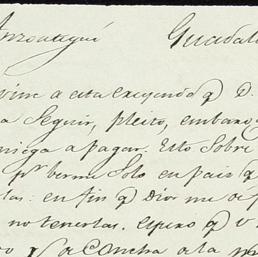 Anzoategui Guadal
vine a esta exigendo q D.
a Seguir, pleito, embarg
niega a pagar. Esto Sobre
pr. verme Solo en pais q
tas: en fin q Dios me a
no tenerlas. espero q V.
a Concha a la